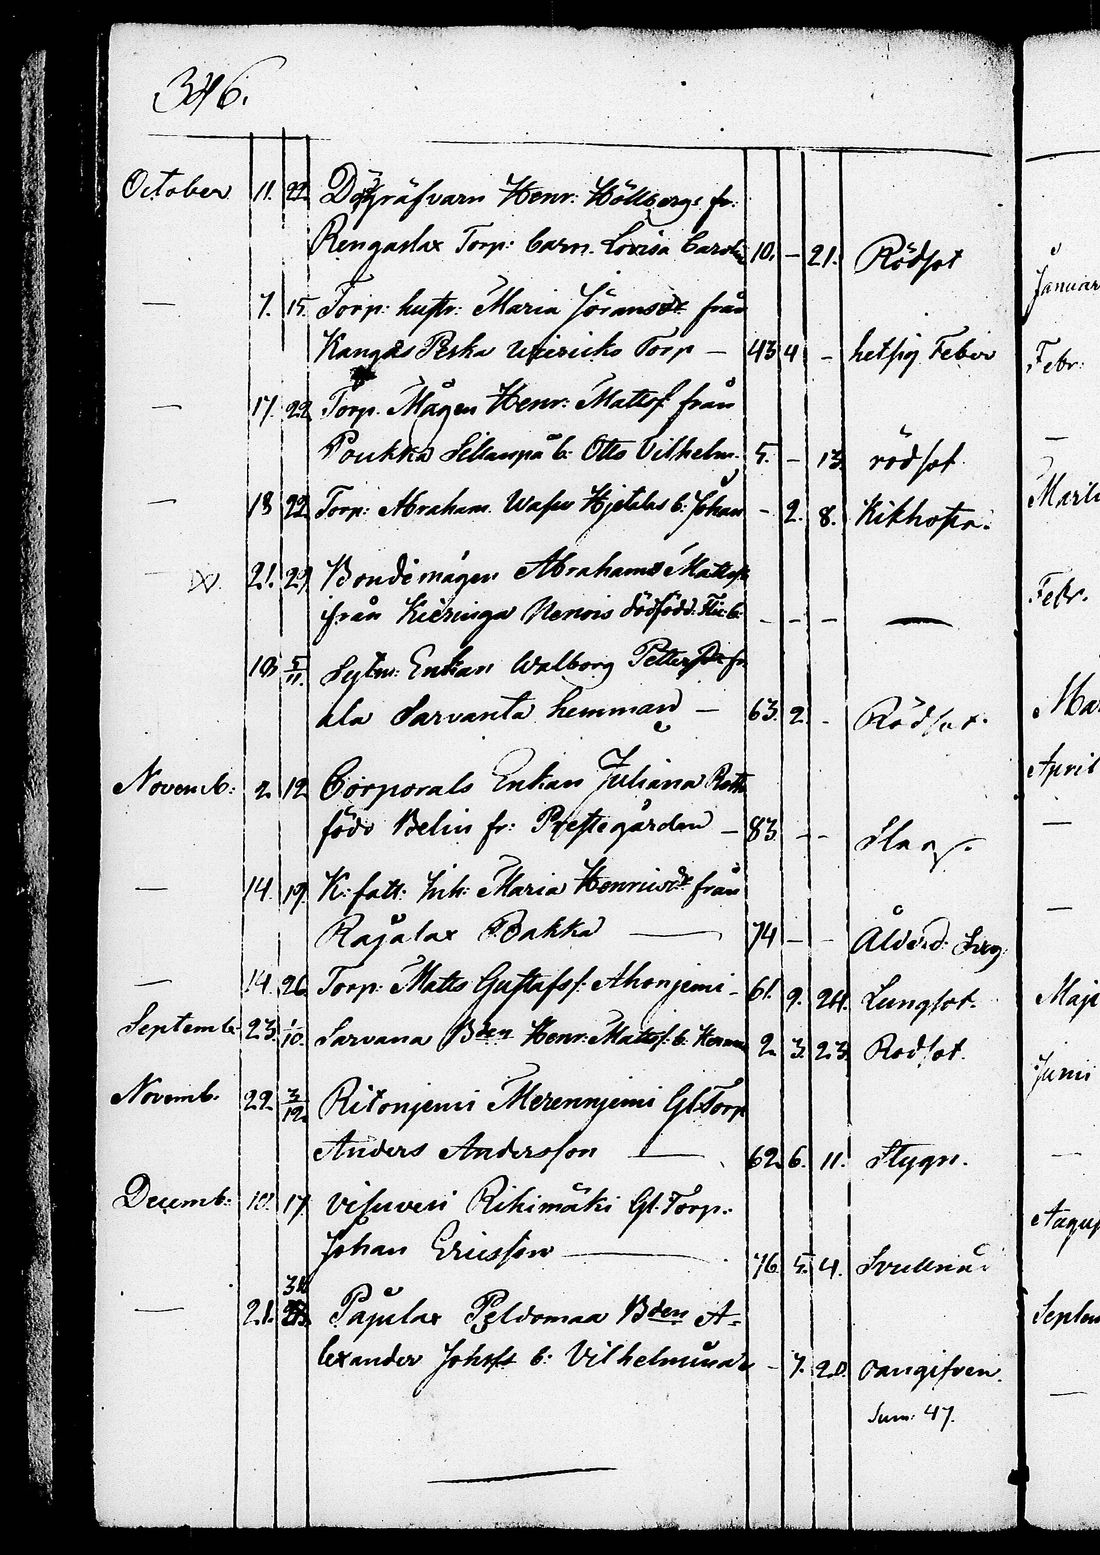 346.
October 11. 22. Dödgräfvarn Henr: Höllbergs fr:
Rengaslax Torp: barn. Lovisa Carolin 10. - 21. Rödsot
— 7. 15. Torp: hustr: Maria Jöransdr från
Kangas Perka Torp — 43 4 - hetsig Feber
— 17. 22. Torp. Mågen Henr: Mattss. från
Poukka Sillanpä b: Otto Vilhelm. 5. - 13. rödsot
— 18 22. Torp: Abraham b: Johan - 2. 8. Kikhosta.
— 21. 29. Bondemågen Abrahams Mattss
från Kieringa Nenois dödfödd. - - - —
18 5/11. Enkan Walborg fr
ala Sarvanta hemman — 63. 2. - Rödsot.
Novemb: 2. 12. Corporals Enkan Juliana
född Belin fr: Prestegården — 83. - - Slag.
— 14. 19. K: fatt: Inh: Maria Henricsdr från
Rajalax Bakka — 74 - - Ålderd:
— 14. 26. Torp: Matts Gustafss. Ahonjemi - 61. 9. 24. Lungsot.
Septemb: 23. 1/10. Sarvana Bden Henr: Mattss. b: Herman 2. 3. 23. Rodsot.
Novemb. 22. 3/12. Ritonjemi Merennjemi Gl: Torp
Anders Andersson — 62. 6. 11. Stygn.
Decemb: 10. 17. Visuvesi Rihimäki Gl. Torp.
Johan Ericsson — 76. 5. 4. Svullnad
— 21. 31. Pajulax Peldomaa Bden A-
lexander Johss b: Vilhelmina - 7. 20. oangifven.
Sum: 47.
Januar
Febr:
—
Marti
Febr.
Mar
April
—
—
Maji
Junii
—
August
Septem
—